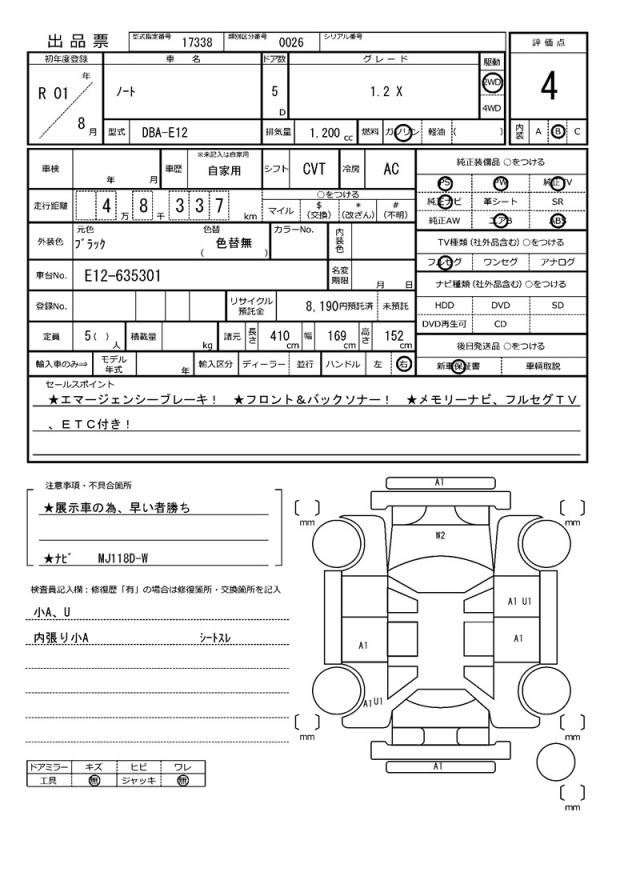 出品票
型式指定番号 17338 類別区分番号 0026 シリアル番号
評価点
4
初年度登録 車名 ドア数 グレード 駆動
R 01 年 8 月
ノート
5 D
1.2 X
2WD
4WD
型式 DBA-E12 排気量 1.200 cc 燃料 ガソリン 軽油 ( )
内装 A B C
車検 年 月 車歴 ※未記入は自家用 自家用 シフト CVT 冷房 AC
走行距離 4 万 8 千 3 3 7 km
○をつける
マイル $ (交換) * (改ざん) # (不明)
外装色 元色 ブラック 色替 ( 色替無 ) カラーNo. 内装色
車台No. E12-635301 名変期限 月 日
登録No. リサイクル預託金 8,190円預託済 未預託
定員 5( ) 人 積載量 kg 諸元 長さ 410 cm 幅 169 cm 高さ 152 cm
輸入車のみ⇒ モデル年式 年 輸入区分 ディーラー 並行 ハンドル 左 右
純正装備品 ○をつける
PS PW 純正TV
純正ナビ 革シート SR
純正AW エアB ABS
TV種類 (社外品含む) ○をつける
フルセグ ワンセグ アナログ
ナビ種類 (社外品含む) ○をつける
HDD DVD SD
DVD再生可 CD
後日発送品 ○をつける
新車保証書 車輌取説
セールスポイント
★エマージェンシーブレーキ！ ★フロント＆バックソナー！ ★メモリーナビ、フルセグＴＶ
、ＥＴＣ付き！
注意事項・不具合箇所
★展示車の為、早い者勝ち
★ナビ MJ118D-W
検査員記入欄：修復歴「有」の場合は修復箇所・交換箇所を記入
小A、U
内張り小A シートスレ
ドアミラー キズ ヒビ ワレ
工具 無 ジャッキ 無
A1
mm
mm
W2
A1 U1
A1
A1
A1U1
mm
mm
A1
mm